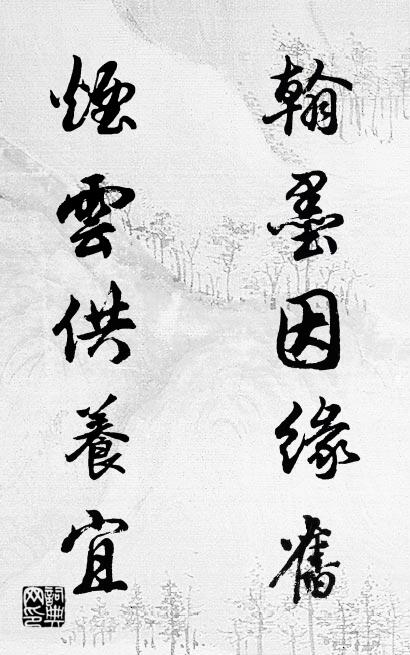 翰墨因緣舊
煙雲供養宜
詞典網印